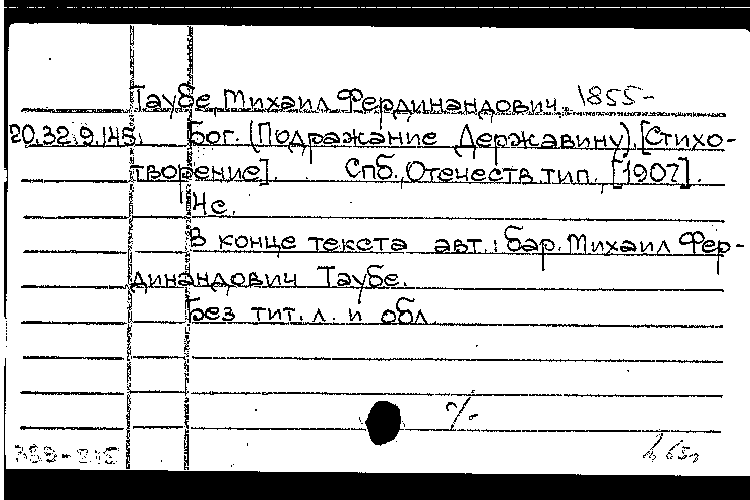 Таубе, Михаил Фердинандович, 1855-
20.32.9.145. Бог. (Подражание Державину). [Стихо-
творение]. Спб., Отечеств. тип., [1907].
4с.
В конце текста авт.: бар. Михаил Фер-
динандович Таубе.
Без тит. л. и обл.